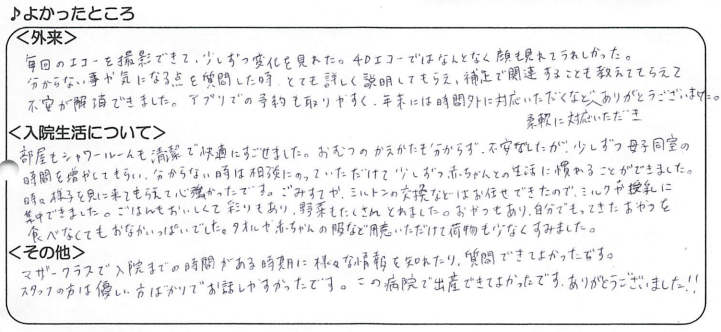 ♪よかったところ
＜外来＞
毎回のエコーを撮影できて、少しずつ変化を見れた。4Dエコーではなんとなく顔も見れてうれしかった。
分からない事や気になる点を質問した時、とても詳しく説明してもらえ、補足で関連することも教えてもらえて
不安が解消できました。アプリでの予約も取りやすく、年末には時間外に対応いただくなど、ありがとうございました。
柔軟に対応いただき
＜入院生活について＞
部屋もシャワールームも清潔で快適にすごせました。おむつのかえかたも分からず、不安でしたが、少しずつ母子同室の
時間を増やしてもらい、分からない時は相談にのっていただけて少しずつ赤ちゃんとの生活に慣れることができました。
時々様子を見に来てもらえて心強かったです。ごみすてや、ミルトンの交換などはお任せできたので、ミルクや授乳に
集中できました。ごはんもおいしくて彩りもあり、野菜もたくさんとれました。おやつもあり、自分でもってきたおやつを
食べなくてもおなかいっぱいでした。タオルや赤ちゃんの服など用意いただけて荷物も少なくすみました。
＜その他＞
マザークラスで入院までの時間がある時期に様々な情報を知れたり、質問できてよかったです。
スタッフの方は優しい方ばかりでお話しやすかったです。この病院で出産できてよかったです、ありがとうございました!!